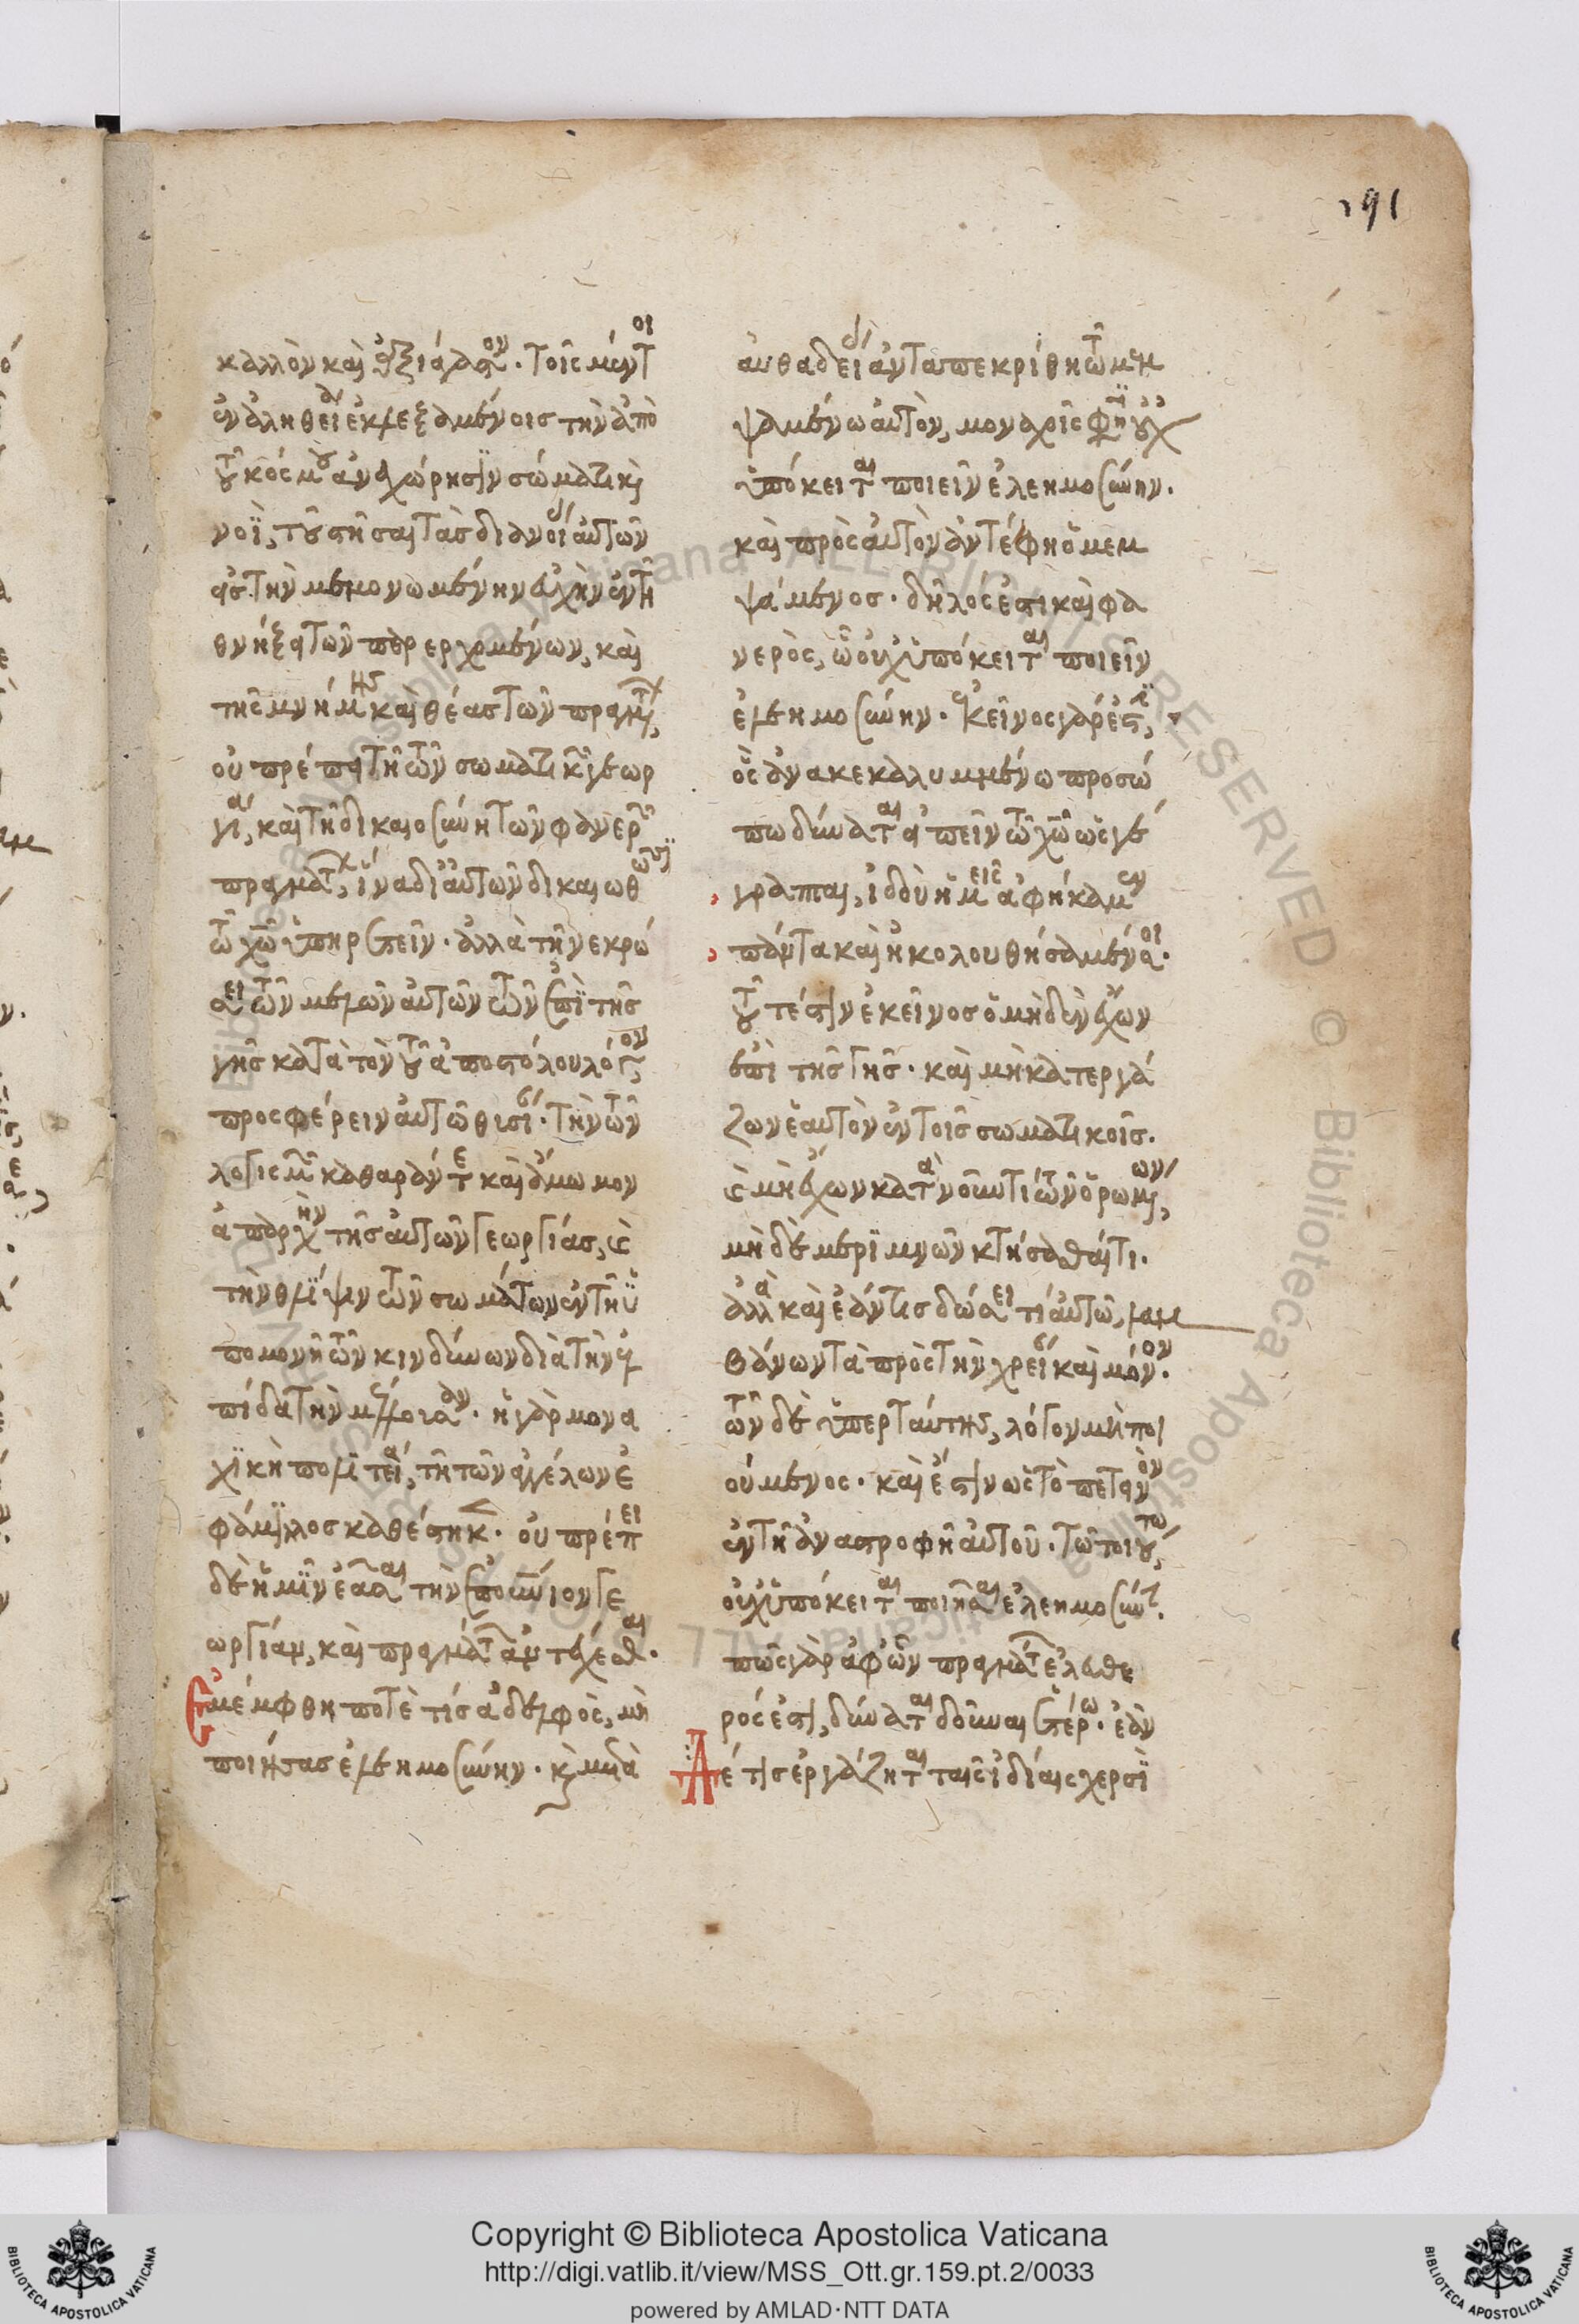 191
καλλὸν καὶ ἐξιάσασον. τοῖς μέντοι
ἐν ἀληθείᾳ ἐκλεξαμένοις τὴν ἀπὸ
τοῦ κόσμου ἀναχώρησιν σώματι καὶ
νοῒ, τοῦ στῆσαι τὰς διανοίας αὐτῶν
εἰς τὴν μεμονωμένην εὐχὴν ἐν τῇ
θνήξει τῶν παρερχομένων, καὶ
τῆς μνήμης καὶ θέας τῶν πραγμάτων,
οὐ πρέπει τῇ τῶν σωματικῶν γεωρ
γίᾳ, καὶ τῇ δικαιοσύνῃ τῶν φανερῶν
πραγμάτων, ἵνα δι' αὐτῶν δικαιωθῶσι
τῷ χῷ ὑπηρετεῖν. ἀλλὰ τῇ νεκρώ
σει τῶν μελῶν αὐτῶν τῶν ἐπὶ τῆς
γῆς κατὰ τὸν τοῦ ἀποστόλου λόγον,
προσφέρειν αὐτῷ θυσίαν. τὴν τῶν
λογισμῶν καθαράν τε καὶ ἄμωμον
ἀπαρχὴν τῆς αὐτῶν γεωργίας, καὶ
τὴν θλίψιν τῶν σωμάτων ἐν τῇ ὑ
πομονῇ τῶν κινδύνων διὰ τὴν ἐλ
πίδα τὴν μέλλουσαν. ἡ γὰρ μονα
χικὴ πολιτεία, τῇ τῶν ἀγγέλων ἐ
φάμιλλος καθέστηκε. οὐ πρέπει
δὲ ἡμῖν ἐᾶσαι τὴν ἐπουράνιον γε
ωργίαν, καὶ πραγμάτων ἀντέχεσθαι.
Ἐμέμφθη ποτὲ τίς ἀδελφὸς, μὴ
ποιήσας ἐλεημοσύνην. καὶ μετὰ
αὐθαδείας ἀνταπεκρίθη τῷ μεμ
ψαμένῳ αὐτὸν, μοναχοῖς φησὶν οὐχ
ὑπόκειται ποιεῖν ἐλεημοσύνην.
καὶ πρὸς αὐτὸν ἀντέφη ὁ μεμ
ψάμενος. δῆλός ἐστι καὶ φα
νερὸς, ᾧ οὐχ ὑπόκειται ποιεῖν
ἐλεημοσύνην. ἐκεῖνος γάρ ἐστιν,
ὃς ἀνακεκαλυμμένῳ προσώ
πῳ δύναται εἰπεῖν τῷ χῷ ὡς γέ
γραπται, ἰδοὺ ἡμεῖς ἀφήκαμεν
πάντα καὶ ἠκολουθήσαμέν σοι.
τοῦτέστιν ἐκεῖνος ὁ μηδὲν ἔχων
ἐπὶ τῆς γῆς. καὶ μὴ κατεργα
ζων ἑαυτὸν ἐν τοῖς σωματικοῖς.
καὶ μὴ ἔχων κατὰ νοῦν τι τῶν ὁρωμένων,
μηδὲ μεριμνῶν κτήσασθαί τι.
ἀλλὰ καὶ ἐάν τις δώσει τι αὐτῷ, λαμ
βάνων τὰ πρὸς τὴν χρείαν καὶ μόνον.
τῶν δὲ ὑπὲρ ταύτης, λόγον μὴ ποι
ούμενος. καὶ ἔστιν ὡς τὸ πετεινὸν
ἐν τῇ ἀναστροφῇ αὐτοῦ. τῷ τοιούτῳ,
οὐχ ὑπόκειται ποιῆσαι ἐλεημοσύνην.
πῶς γὰρ ἀφ' ὧν πραγμάτων ἐλεύθε
ρός ἐστι, δύναται δοῦναι ἑτέρῳ. ἐὰν
δέ τις ἐργάζηται ταῖς ἰδίαις χερσὶ
Copyright © Biblioteca Apostolica Vaticana
http://digi.vatlib.it/view/MSS_Ott.gr.159.pt.2/0033
powered by AMLAD·NTT DATA